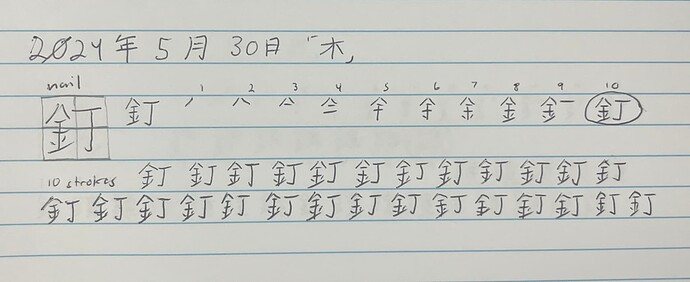 2024年 5月 30日「木」
nail 1 2 3 4 5 6 7 8 9 10
釘 釘 金 釘
10 strokes 釘 釘 釘 釘 釘 釘 釘 釘 釘 釘 釘 釘
釘 釘 釘 釘 釘 釘 釘 釘 釘 釘 釘 釘 釘 釘 釘